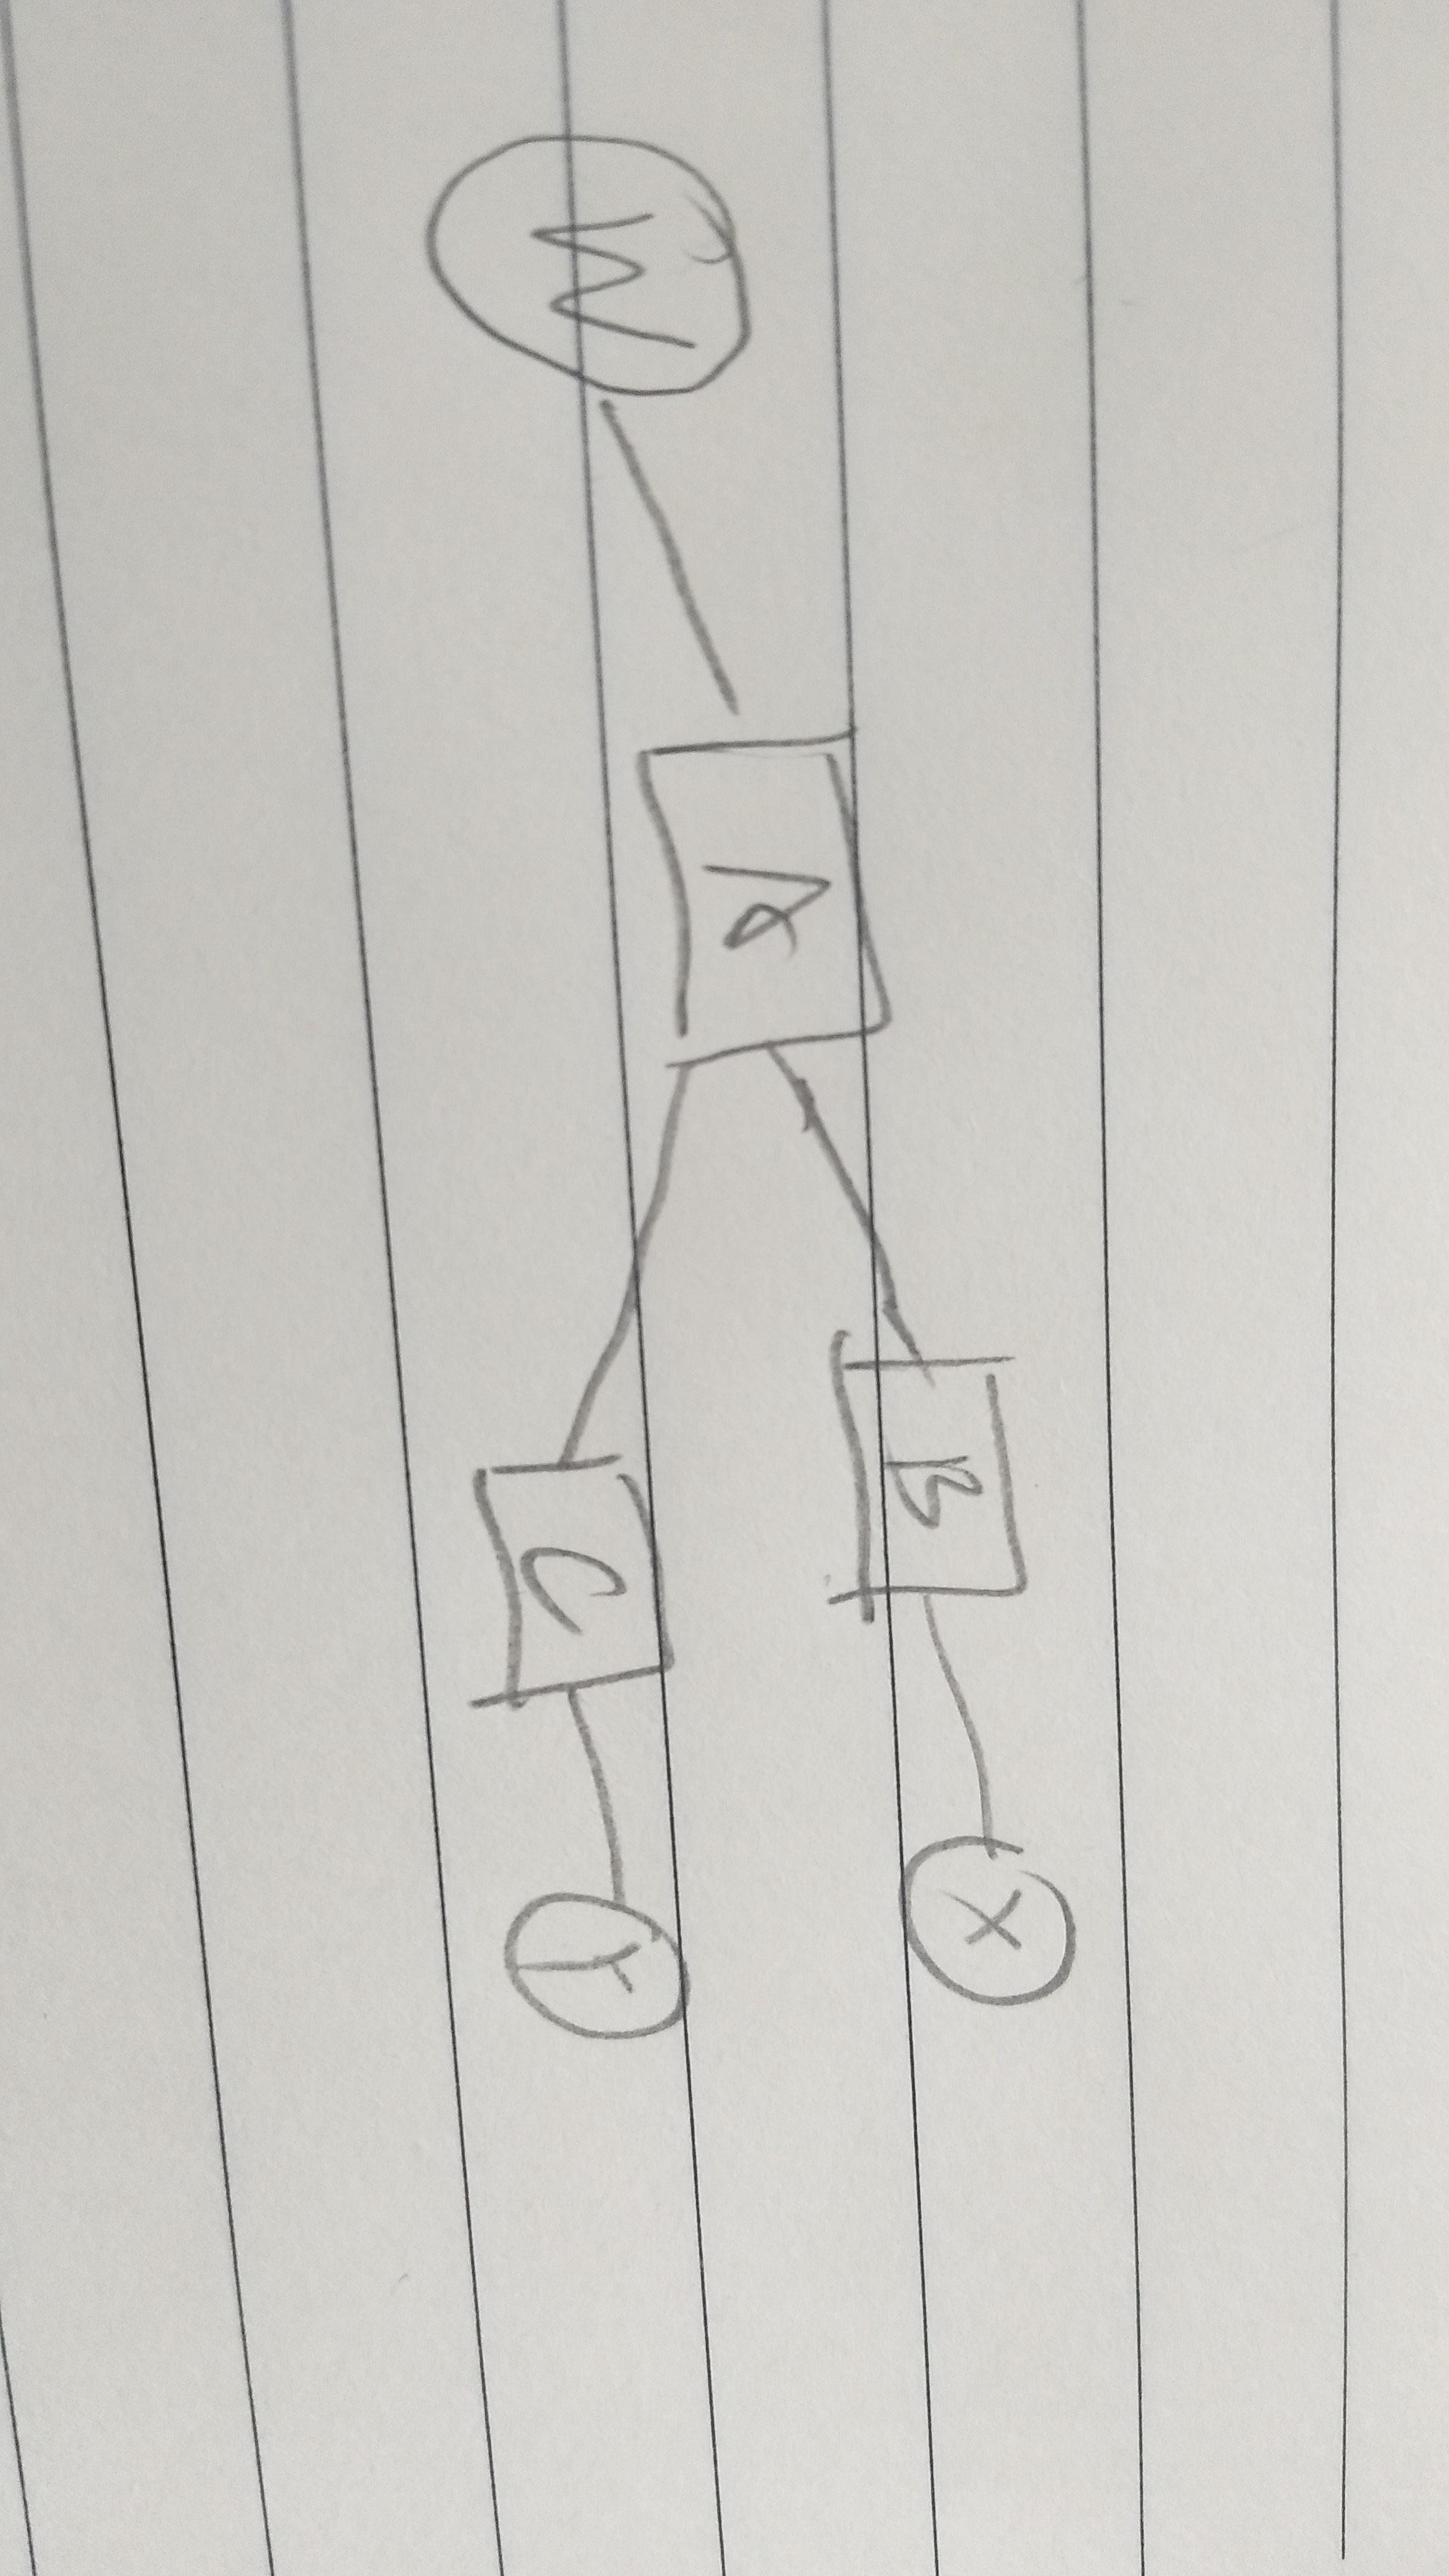 W
A
B
X
C
Y